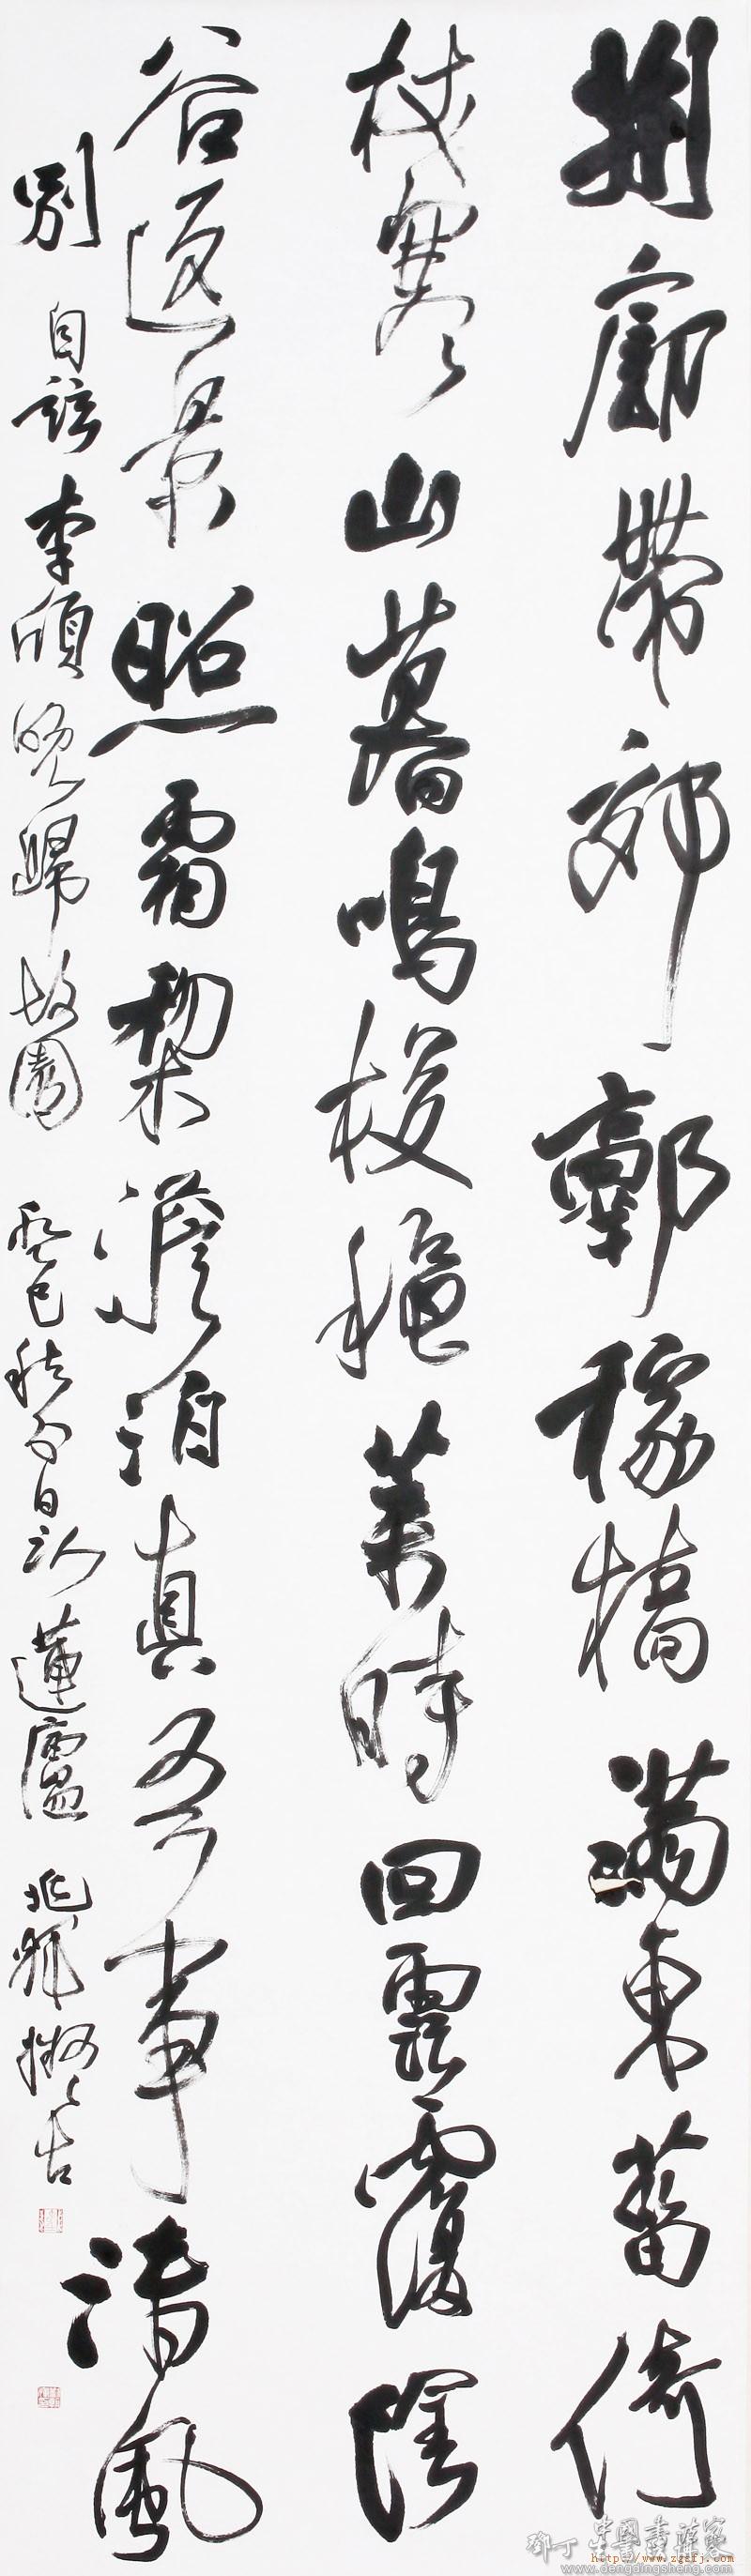 荆扉带郊郭稼穑满东菑倚
杖寒山暮鸣梭秋叶时回云覆阴
谷返景照霜梨澹泊真吾事清风
别自兹李颀晚归故园癸巳秋白日以莲庐兆辉拟古
邓丁 中国书法家
http://www.zgsfj.com
www.dengdingsheng.com